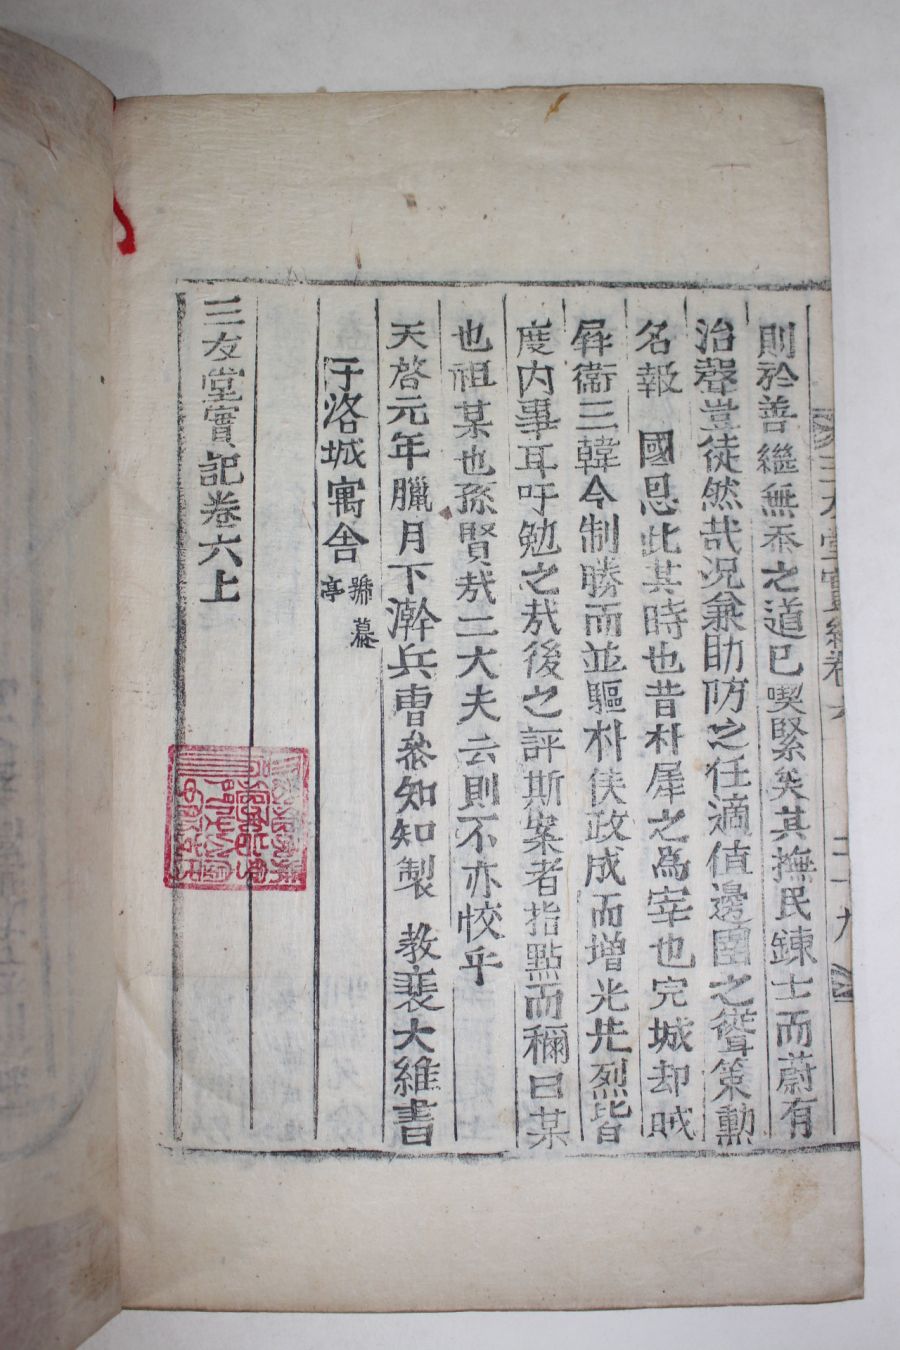 則於善繼無忝之道已喫緊矣其撫民鍊士而蔚有
治聲豈徒然哉況兼助防之任適值邊圉之聳策勳
名報 國恩此其時也昔朴犀之為宰也完城却賊
屛衞三韓令制勝而並驅朴侯政成而增光先烈皆
度內事耳吁勉之㢤後之評斯案者指點而稱曰某
也祖某也孫賢㢤二大夫云則不亦恔乎
天啓元年臘月下澣兵曹叅知知製 敎裵大維書
于洛城寓舍 號慕亭
三友堂實記卷六上